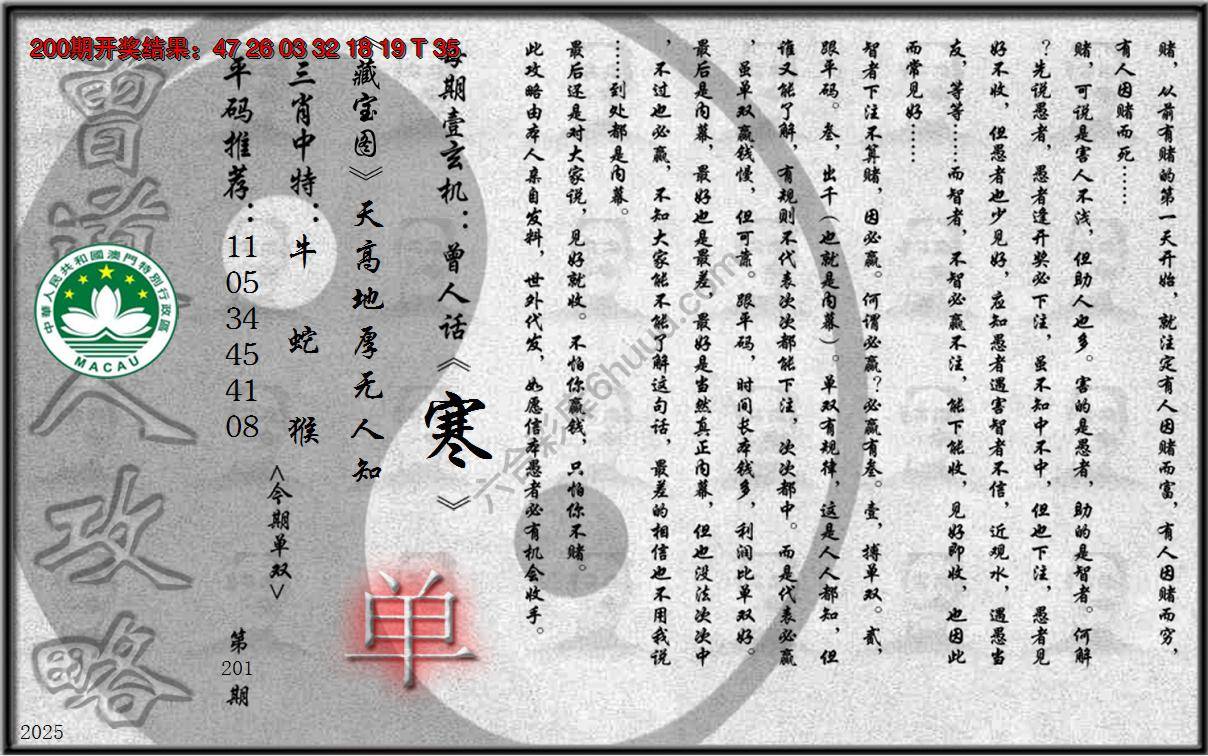 200期开奖结果：47 26 03 32 18 19 T 35
赌，从前有赌的第一天开始，就注定有人因赌而富，有人因赌而穷，
有人因赌而死……
赌，可说是害人不浅，但助人也多。害的是愚者，助的是智者。何解
？先说愚者，愚者逢开奖必下注，虽不知中不中，但也下注，愚者见
好不收，但愚者也少见好，应知愚者遇害智者不信，近观水，遇愚当
友，等等……而智者，不智必赢不注，能下能收，见好即收，也因此
而常见好……
智者下注不算赌，因必赢。何谓必赢？必赢有叁。壹，搏单双。贰，
跟平码。叁，出千（也就是内幕）。单双有规律，这是人人都知，但
谁又能了解，有规则不代表次次都能下注，次次都中。而是代表必赢
，虽单双赢钱慢，但可靠。跟平码，时间长本钱多，利润比单双好。
最后是内幕，最好也是最差，最好是当然真正内幕，但也没法次次中
，不过也必赢，不知大家能不能了解这句话，最差的相信也不用我说
……到处都是内幕。
最后还是对大家说，见好就收。不怕你赢钱，只怕你不赌。
此攻略由本人亲自发料，世外代发，如愿信本愚者必有机会收手。
每期壹玄机：曾人话《寒》
《藏宝图》天高地厚无人知
三肖中特：牛 蛇 猴
<今期单双>
单
平码推荐：11 05 34 45 41 08
第201期
曾道人攻略
中華人民共和國澳門特別行政區
MACAU
2025